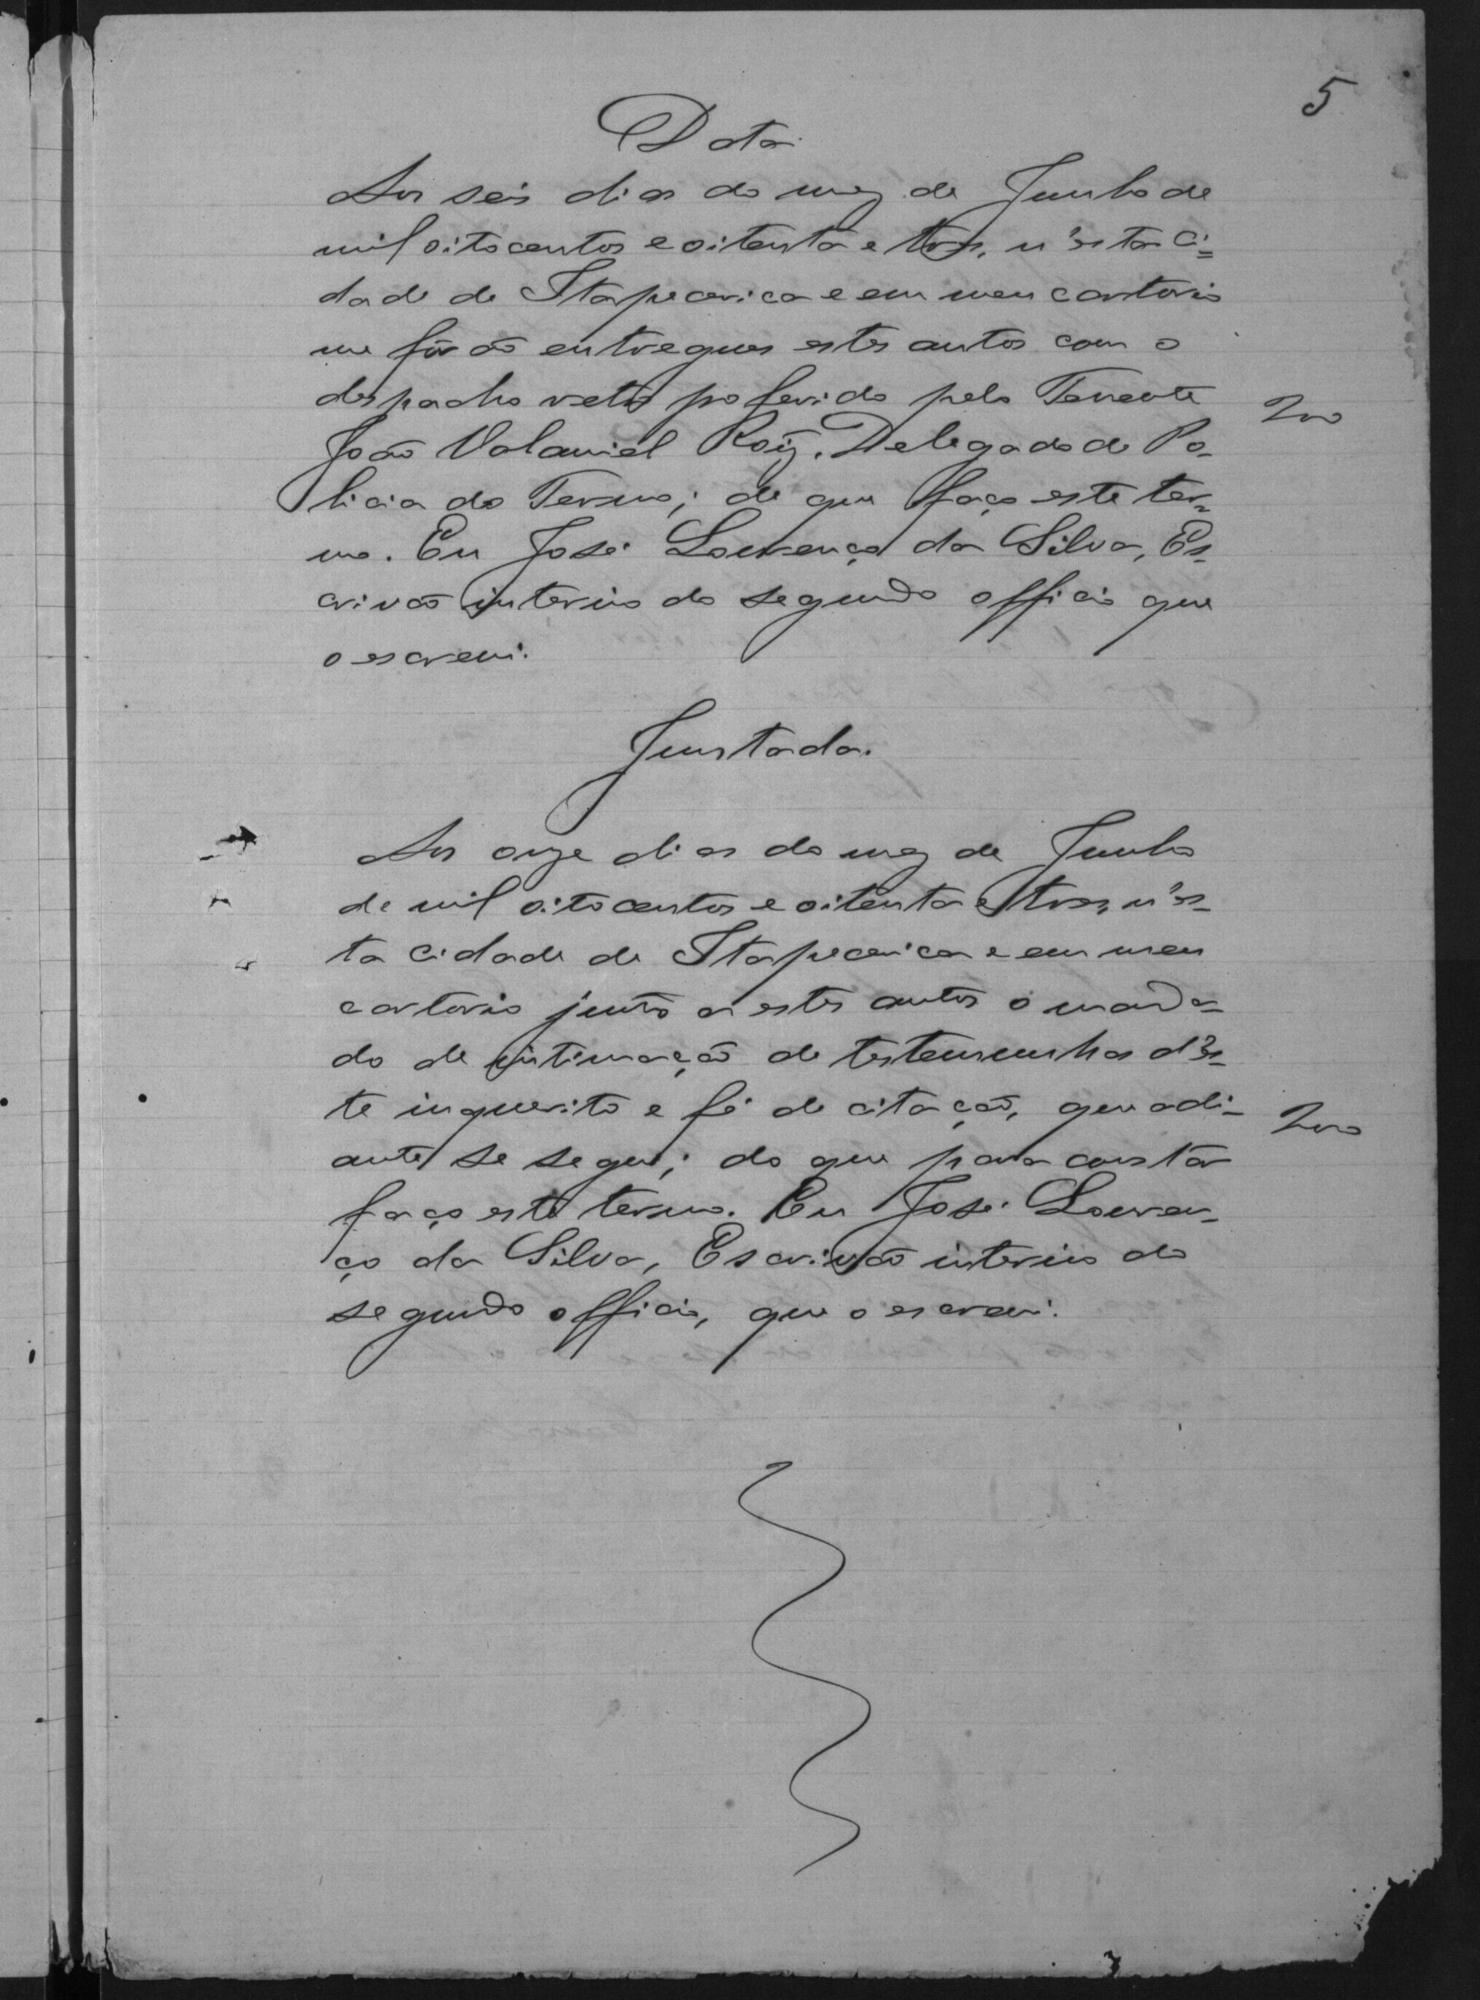 5
Data
Aos seis dias do mez de Junho de
mil oitocentos e oitenta e tres, n'esta ci=
dade de Itapecerica e em meu cartorio
me forão entregues estes autos com o
despacho retro proferido pelo Tenente
200
João Roiz, Delegado de Po-
licia do Termo; de que faço este ter-
mo. Eu José Lourenço da Silva, Es-
crivão interino do segundo officio que
o escrevi.
Juntada.
Aos onze dias do mez de Junho
de mil oitocentos e oitenta e tres, n'es-
ta cidade de Itapecerica e em meu
cartorio junto a estes autos o manda-
do de intimação de testemunhas d'es-
te inquerito e fé de citação, que adi-
200
ante se segue; do que para constar
faço este termo. Eu José Louren-
ço da Silva, Escrivão interino do
segundo officio, que o escrevi.